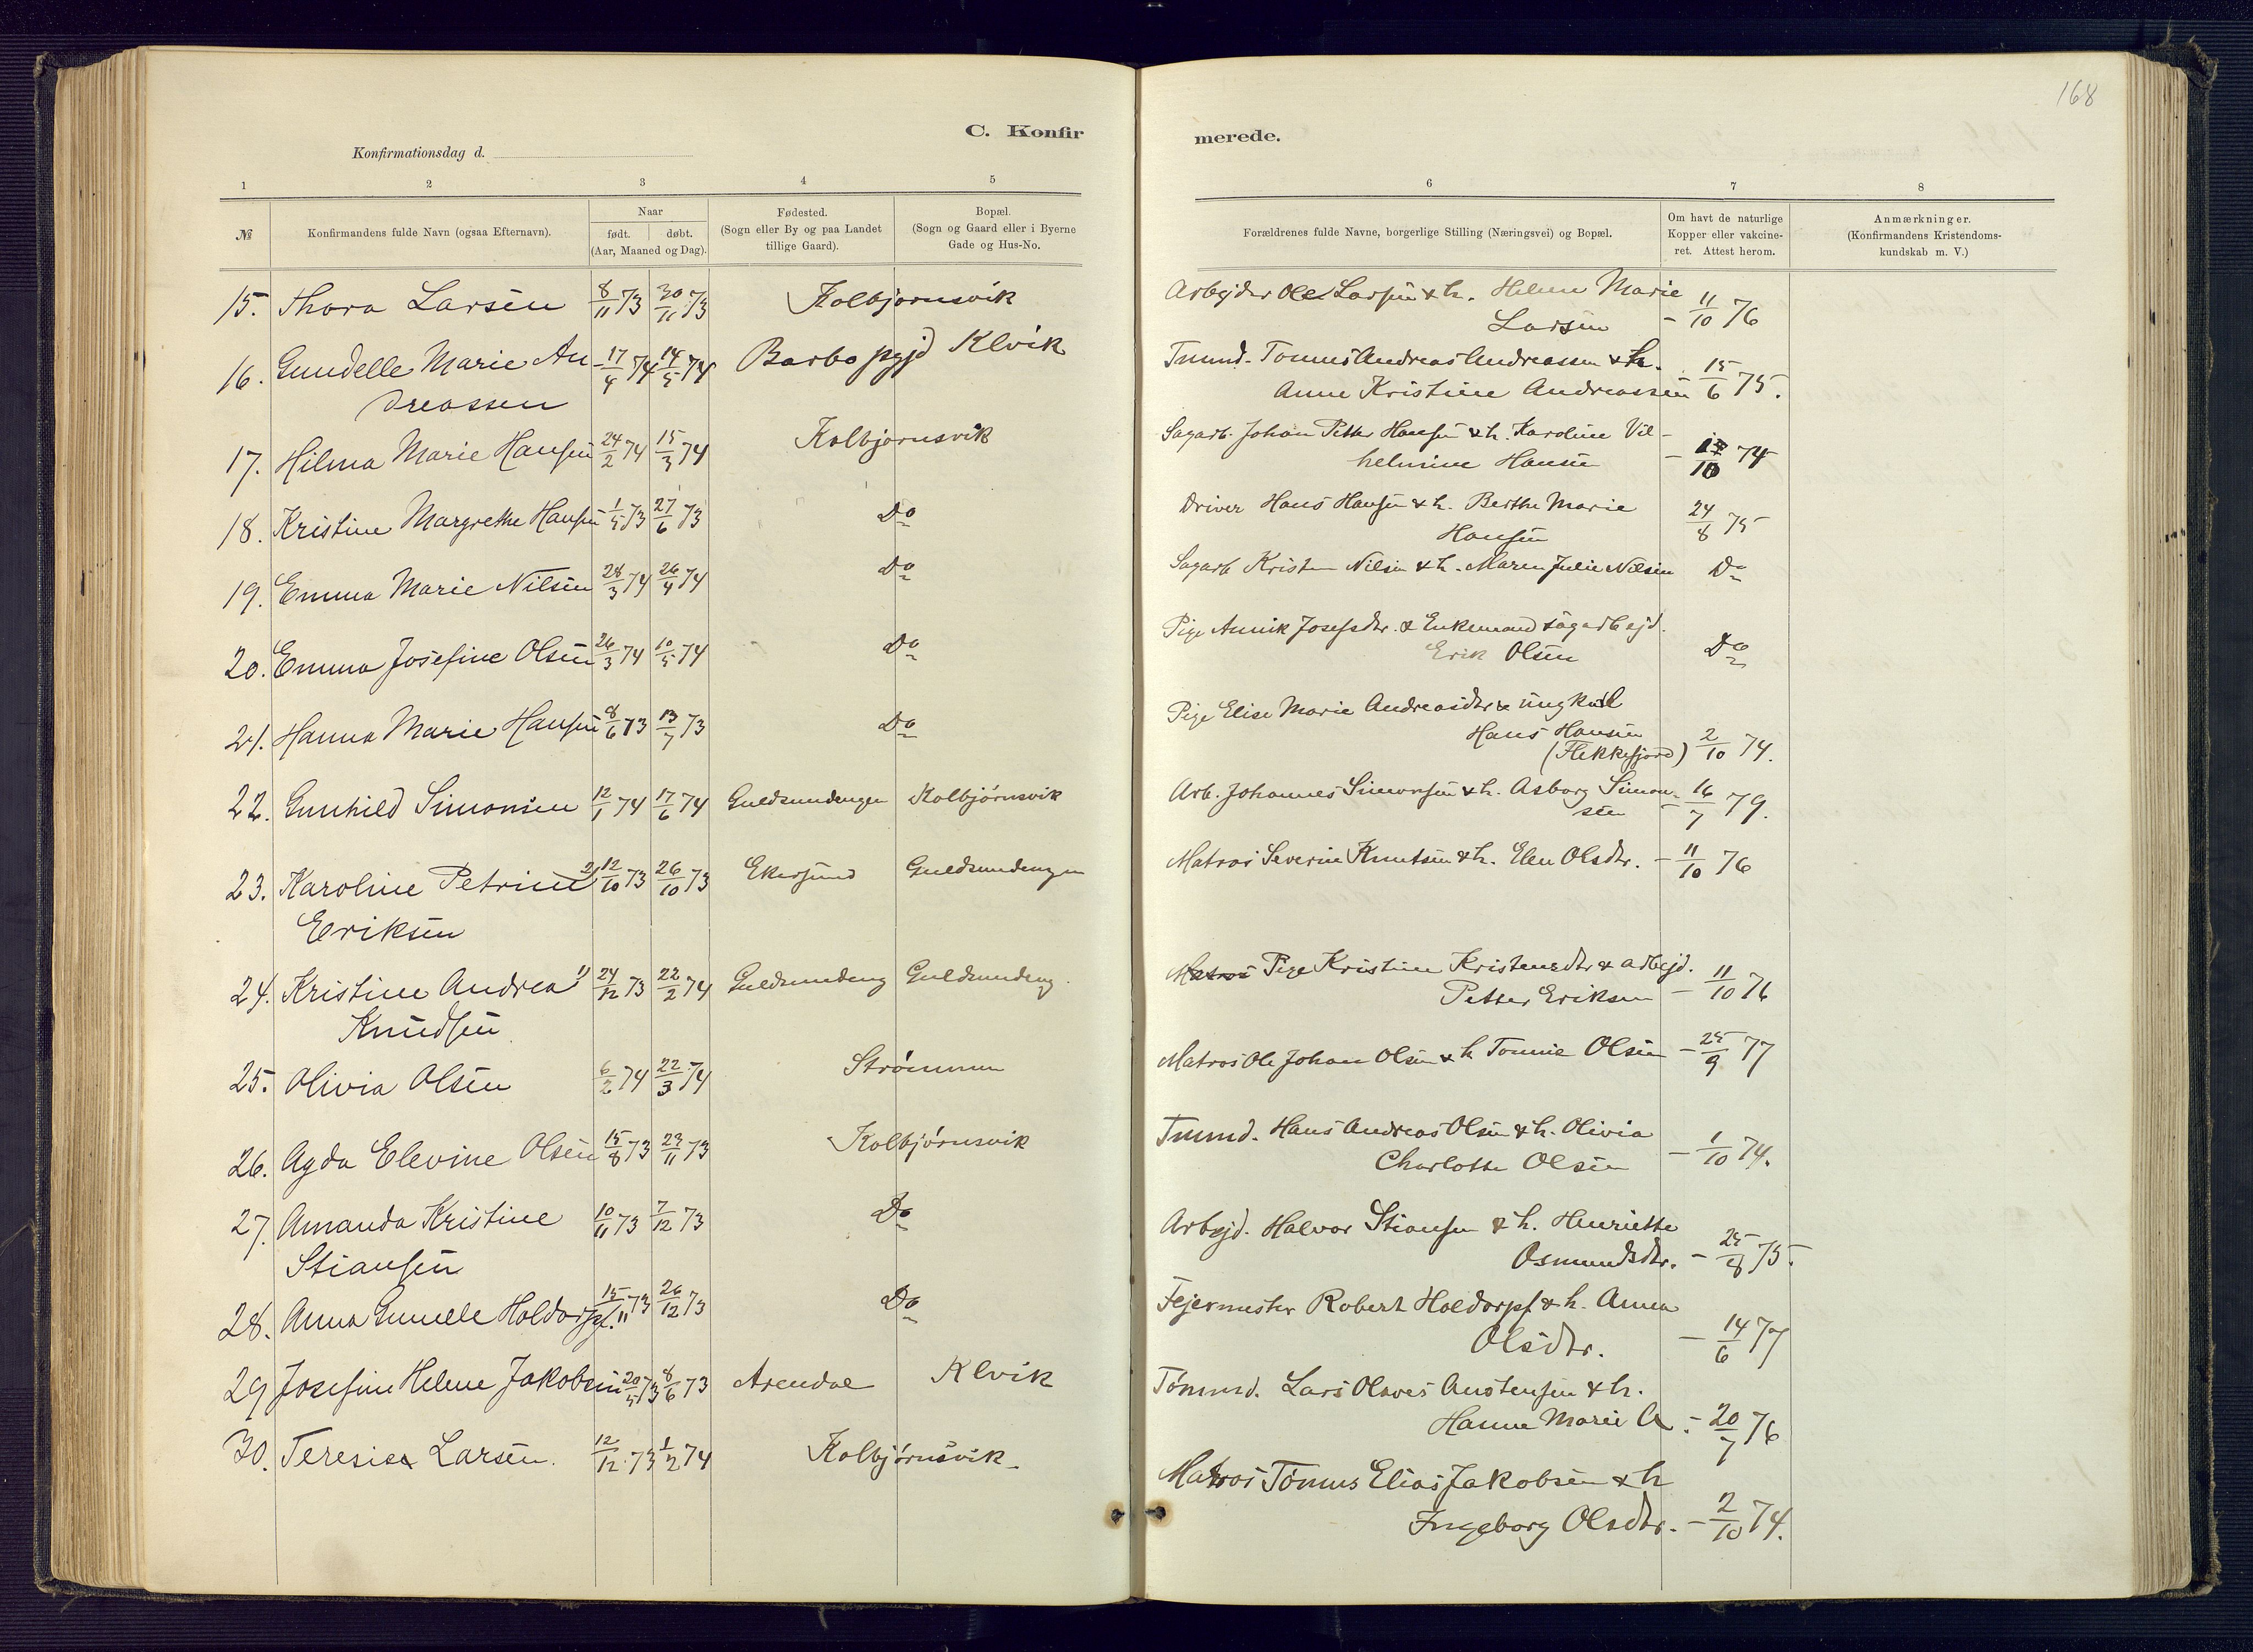 168
C. Konfir
merede.
Konfirmationsdag d.
1 2 3 4 5 6 7 8
№
Konfirmandens fulde Navn (ogsaa Efternavn).
Naar
født. døbt.
(Aar, Maaned og Dag).
Fødested.
(Sogn eller By og paa Landet
tillige Gaard).
Bopæl.
(Sogn og Gaard eller i Byerne
Gade og Hus-No.
Forældrenes fulde Navne, borgerlige Stilling (Næringsvei) og Bopæl.
Om havt de naturlige
Kopper eller vakcine-
ret. Attest herom.
Anmærkninger.
(Konfirmandens Kristendoms-
kundskab m. V.)
15. Thora Larsen 8/11 73 30/11 73 Kolbjornsvik Arbejder Ole Larsen & h. Helene Marie
Larsen - 11/10 76
16. Gundelle Marie An 17/4 74 14/5 74 Barbo pgjd Klvik Tmmd. Tomas Andreas Andreassen & h.
dreassen Anne Kristine Andreassen 15/6 75.
17. Hilma Marie Hansen 24/2 74 15/3 74 Kolbjornsvik Sagarb. Johan Petter Hansen & h. Karoline Vil-
helmine Hansen - 74
18. Kristine Margrethe Hansen 1/5 73 27/6 73 Do Driver Hans Hansen & h. Berthe Marie
Hansen 24/8 75
19. Emma Marie Nilsen 28/3 74 26/4 74 Do Sagarb Kristen Nilsen & h. Maren Julie Nilsen Do
20. Emma Josefine Olsen 26/3 74 10/5 74 Do Pige Annik Josefsdtr. & Enkemand sagarbejd.
Erik Olsen Do
21. Hanna Marie Hansen 8/6 73 13/7 73 Do Pige Elise Marie Andreasdtr & ungkarl
Hans Hansen
(Flekkefjord) 2/10 74.
22. Gunhild Simonsen 12/1 74 17/6 74 Guldsmedengen Kolbjørnsvik Arb. Johannes Simonsen & h. Asborg Simon-
sen - 16/7 79.
23. Karoline Petrine 2) 12/10 73 26/10 73 Ekersund Guldsmedengen Matros Severin Knutsen & h. Elen Olsdtr. - 11/10 76
Eriksen
24. Kristine Andrea 1) 24/12 73 22/2 74 Guldsmedeng Guldsmedeng. Matros Pige Kristine Kristensdtr & arbejd.
Knudsen Petter Eriksen - 11/10 76
25. Olivia Olsen 6/2 74 22/3 74 Strømmen Matros Ole Johan Olsen & h Tomine Olsen - 25/9 77
26. Agda Elevine Olsen 15/8 73 23/11 73 Kolbjørnsvik Tmmd. Hans Andreas Olsen & h. Olivia
Charlotte Olsen - 1/10 74.
27. Amanda Kristine 10/11 73 7/12 73 Do Arbejd. Halvor Stiansen & h. Henriette
Stiansen Osmundsdtr. - 25/8 75.
28. Anna Gunelle Holdorpf. 15/11 73 26/12 73 Do Fejermester Robert Holdorpf & h. Anna
Olsdtr. - 14/6 77
29 Josefine Helene Jakobsen 20/5 73 8/6 73 Arendal Klvik Tømmd. Lars Olaves Anstensen & h.
Hanne Marie A. - 20/7 76
30. Teresie Larsen. 12/12 73 1/2 74 Kolbjørnsvik Matros Tønnes Elias Jakobsen & h
Ingeborg Olsdtr. - 2/10 74.